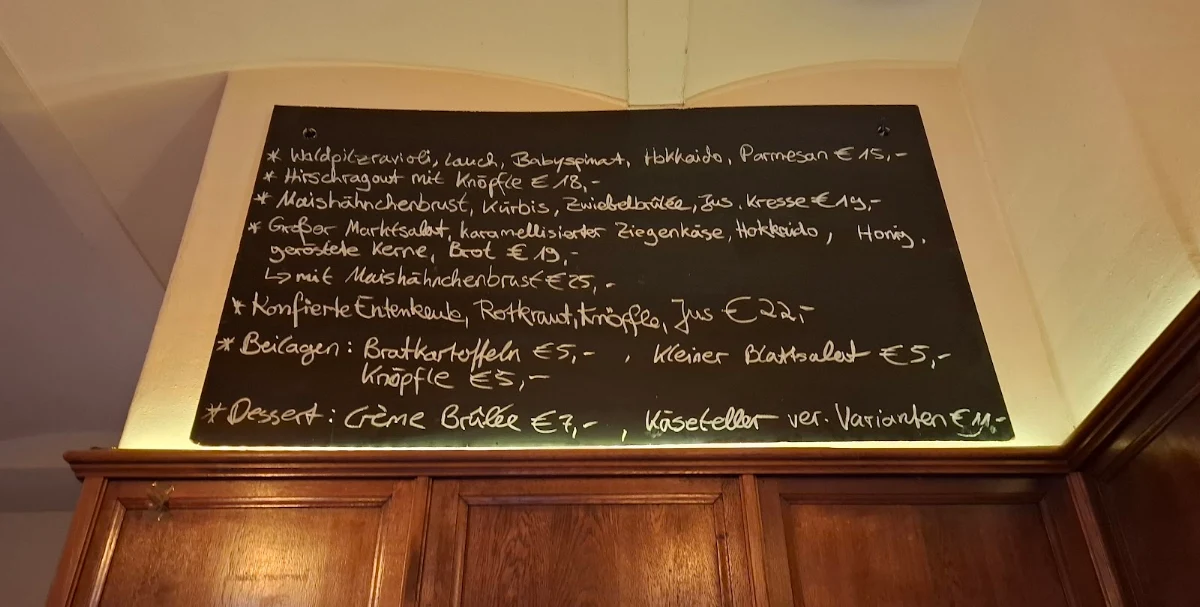 * Waldpilzravioli, Lauch, Babyspinat, Hokkaido, Parmesan € 15,-
* Hirschragout mit Knöpfle € 18,-
* Maishähnchenbrust, Kürbis, Zwiebelbrûlée, Jus, Kresse € 19,-
* Großer Marktsalat, karamellisierter Ziegenkäse, Hokkaido, Honig,
geröstete Kerne, Brot € 19,-
↳ mit Maishähnchenbrust € 25,-
* Konfierte Entenkeule, Rotkraut, Knöpfle, Jus € 22,-
* Beilagen: Bratkartoffeln € 5,- , kleiner Blattsalat € 5,-
Knöpfle € 5,-
* Dessert: Crème Brûlée € 7,- , Käseteller ver. Varianten € 11,-